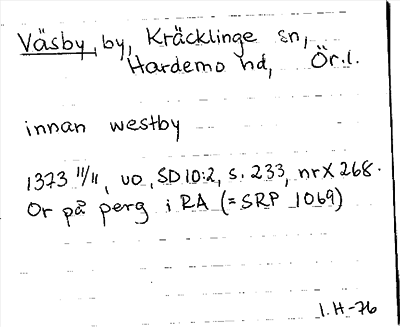 Väsby, by, Kräcklinge sn,
Hardemo hd, Ör.l.
innan westby
1373 11/11, uo, SD 10:2, s. 233, nr X 268.
Or på perg i RA (=SRP 1069)
I.H-76